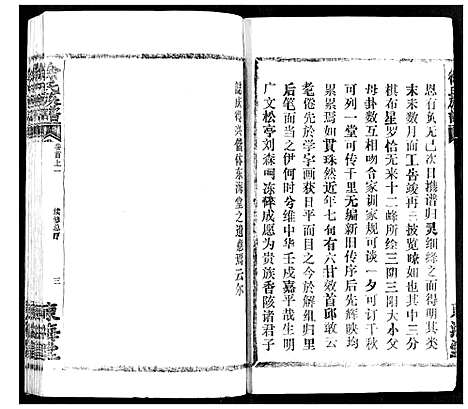 恩有负无已次日携谱归灵细绎之而得明其类
末来数月而工告竣再三披览嘹如也其中三分
棋布星罗恰无来十二峰所绘三阴三阳大小父
母卦数互相吻合家训家规可谈一夕可订千秋
可列一堂可传千里无编新旧传序后先辉映均
累累焉如贯珠然近年七旬有六甘敢首邱敢云
耄倦先於学字画获日平而目之今於解组归里
后笔而当之伊何时分维中华壬戌嘉平哉生明
广文松亭刘森 冻 成愿为贵族香陔诸君子
东海堂
得兴 体东海堂之遗意焉云尔
徐氏族谱
卷首上一
续修总序
三
東海堂